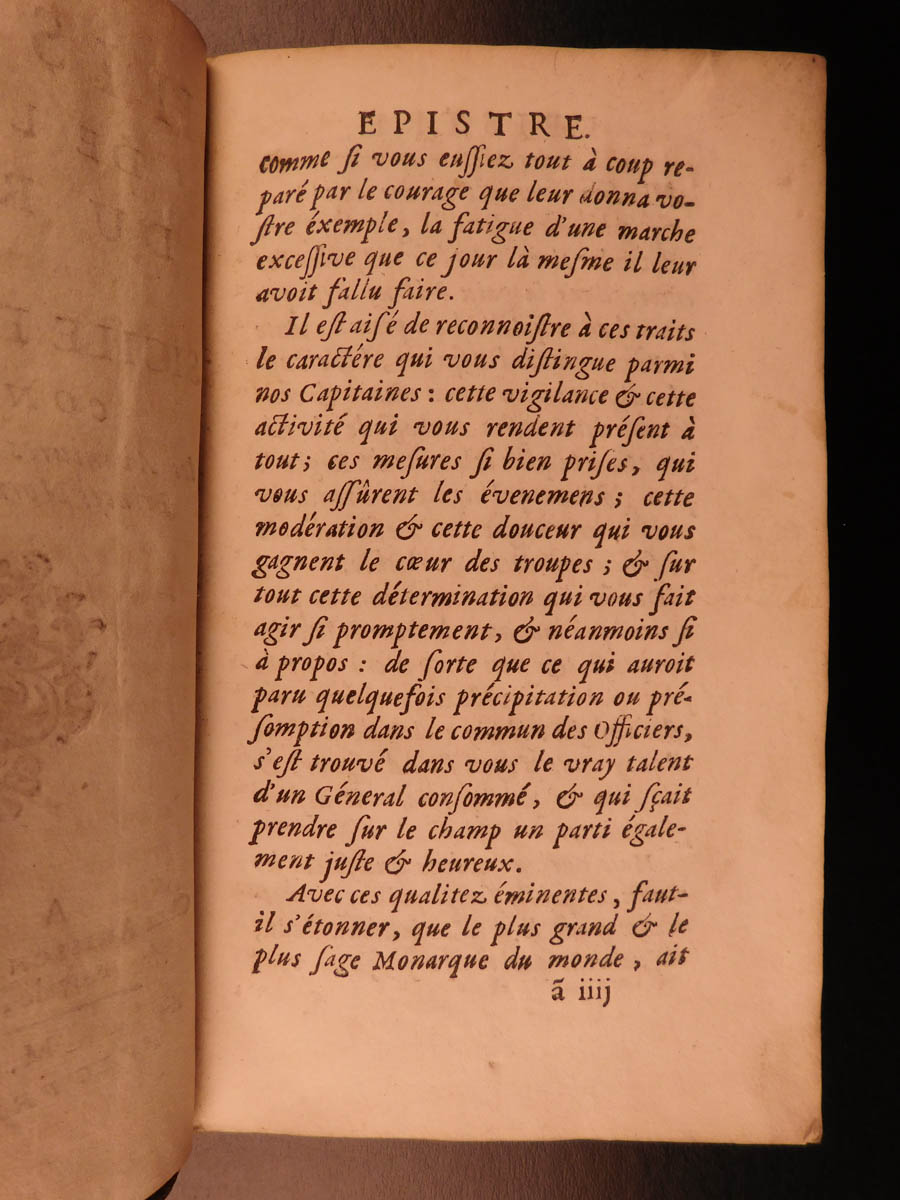 EPISTRE.
comme ſi vous euſſiez tout à coup re-
paré par le courage que leur donna vo-
ſtre éxemple, la fatigue d'une marche
exceſſive que ce jour là meſme il leur
avoit fallu faire.
Il eſt aiſé de reconnoiſtre à ces traits
le caractére qui vous diſtingue parmi
nos Capitaines : cette vigilance & cette
activité qui vous rendent préſent à
tout ; ces meſures ſi bien priſes, qui
vous aſſûrent les évenemens ; cette
modération & cette douceur qui vous
gagnent le cœur des troupes ; & ſur
tout cette détermination qui vous fait
agir ſi promptement, & néanmoins ſi
à propos : de ſorte que ce qui auroit
paru quelquefois précipitation ou pré-
ſomption dans le commun des Officiers,
s'eſt trouvé dans vous le vray talent
d'un Géneral conſommé, & qui ſçait
prendre ſur le champ un parti égale-
ment juſte & heureux.
Avec ces qualitez éminentes, faut-
il s'étonner, que le plus grand & le
plus ſage Monarque du monde, ait
ã iiij